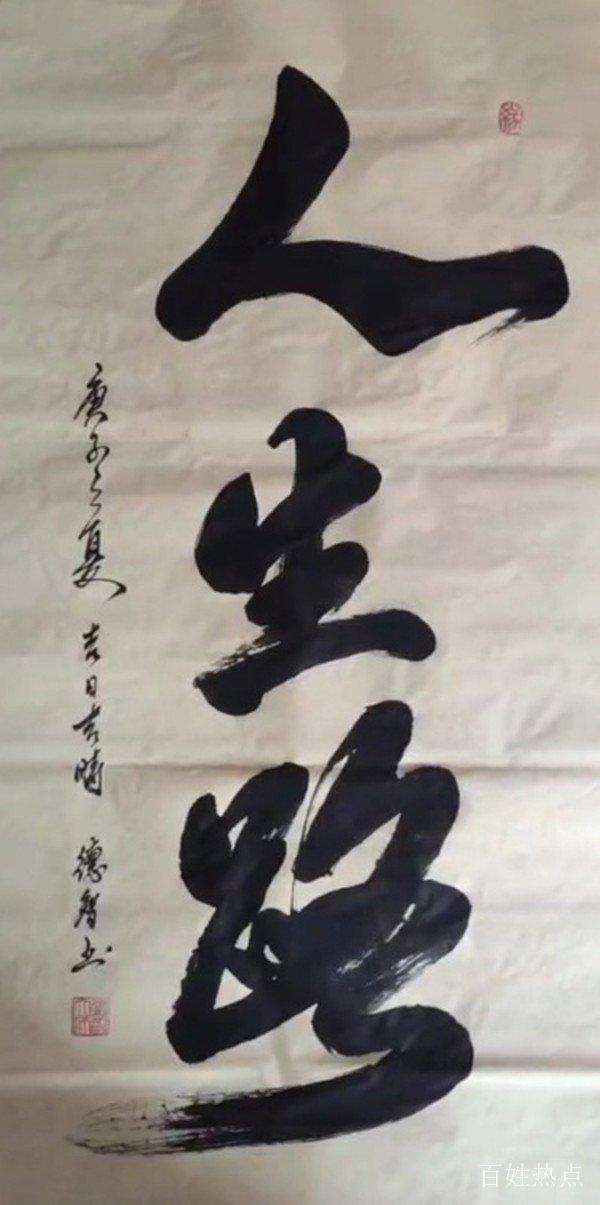 人生路
庚子之夏 吉日吉時 德智书
百姓热点